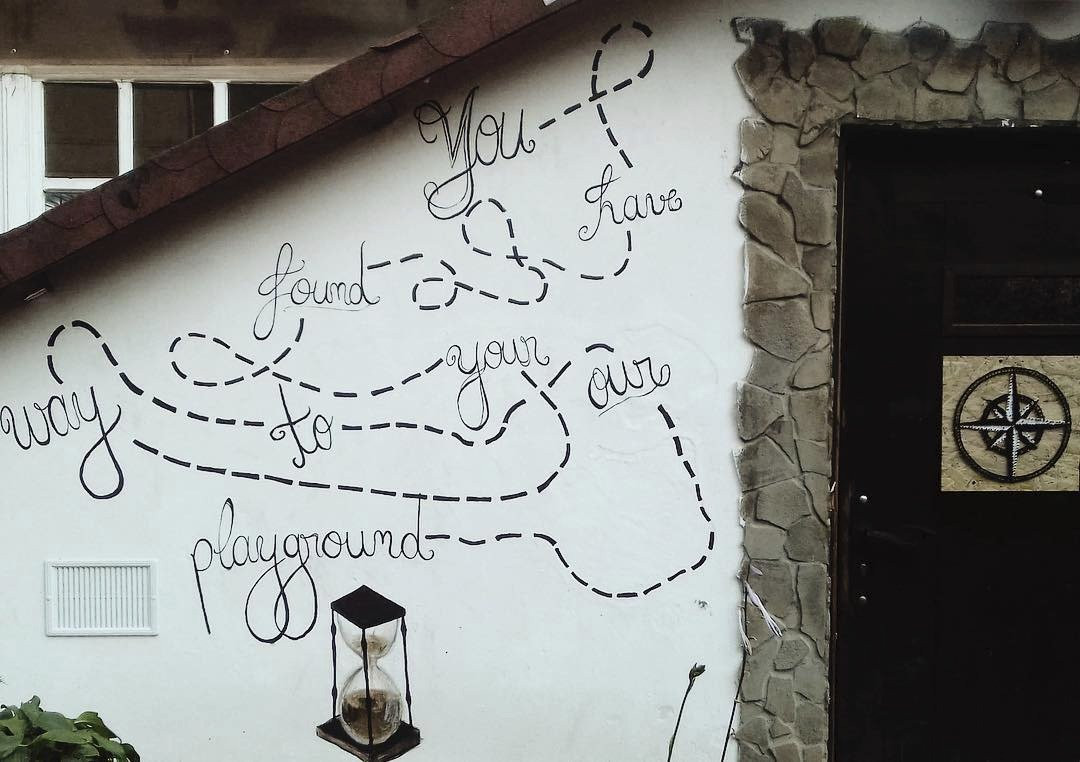 You
have
found
your
way
to
our
playground